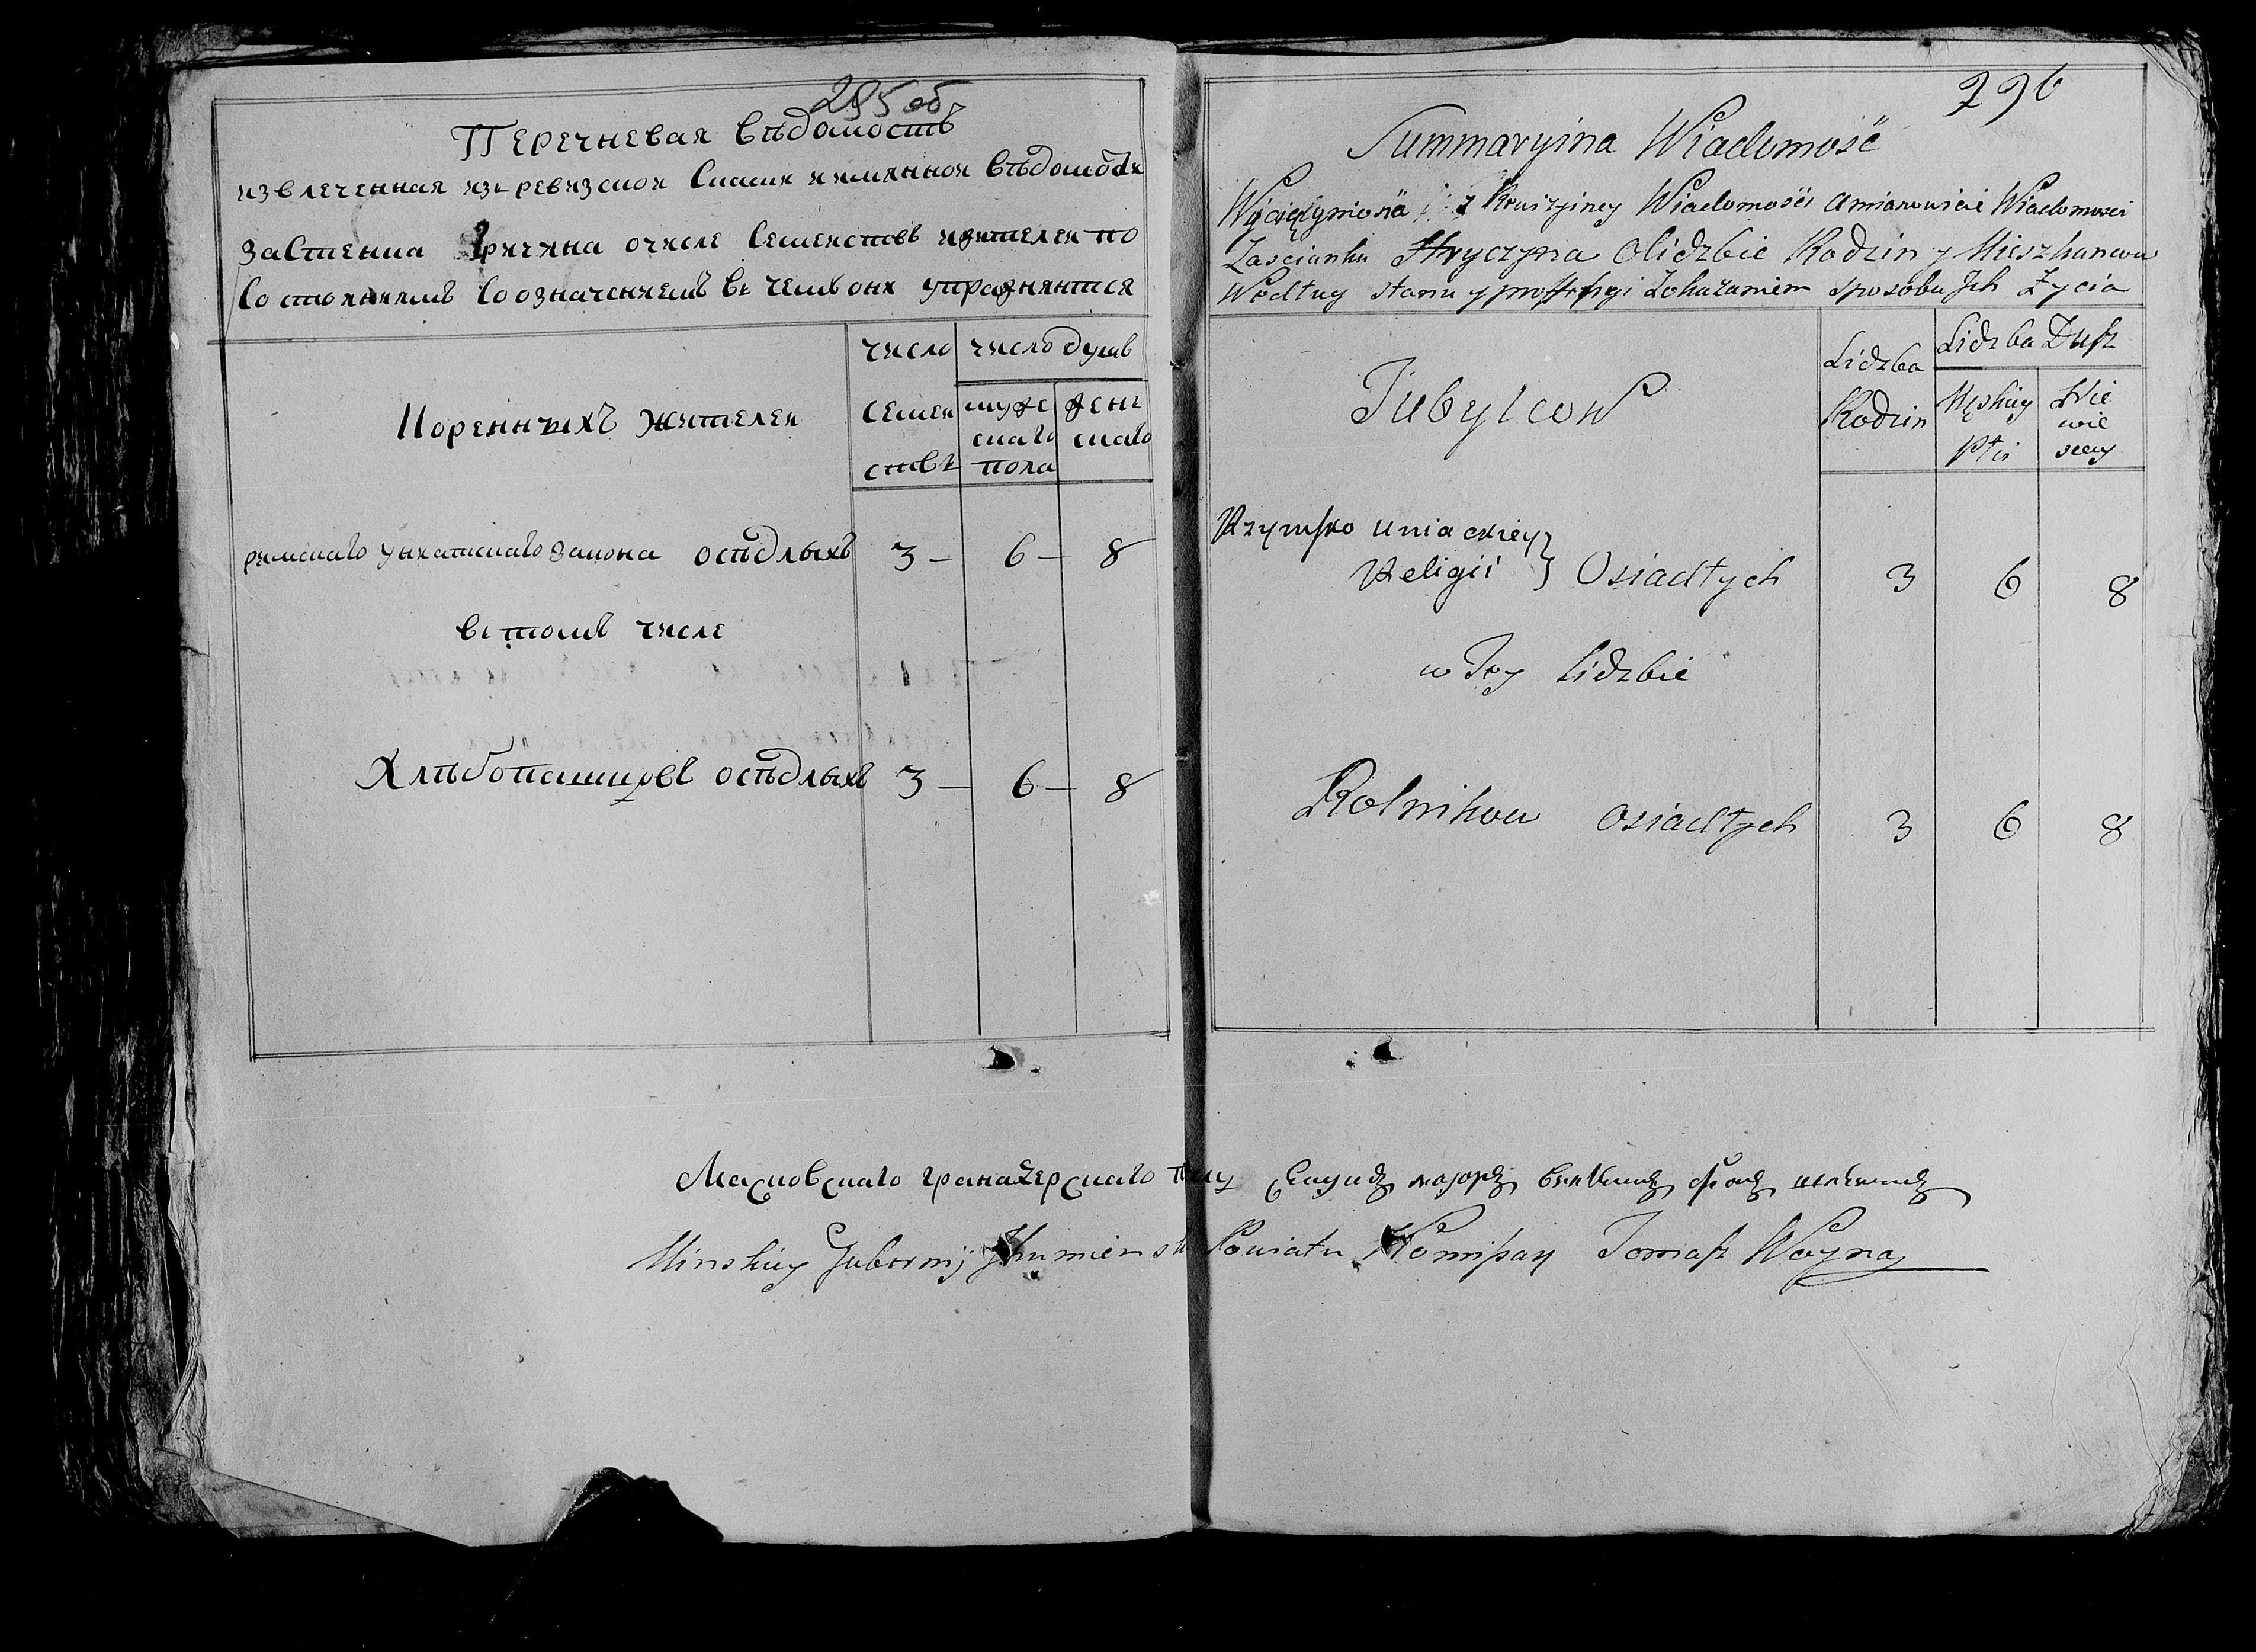 295 об
Перечневая вѣдомость
извлеченная изъ ревизской Сказки имянной вѣдомости
застенка Гричина о числе Семействъ жителей по
Состояниямъ Со означениемъ въ чемъ они упражняются
Коренныхъ жителей
число Семействъ
число душъ
мужескаго пола
женскаго
римскаго униатскаго закона осѣдлыхъ 3 – 6 – 8
въ томъ числе
Хлѣбопашцовъ осѣдлыхъ 3 – 6 – 8
296
Summaryina Wiadomość
Wyciągniona z Rewizyiney Wiadomości a mianowicie Wiadomosci
Zascianku Hryczyna o lidzbie Rodzin y Mieszkancow
Według stanu y z okazaniem sposobu Jch Zycia
Tubylcow
Lidzba Rodzin
Lidzba Dusz
Męskiey Płci
Nie wie sciey
Rzymsko Uniackiey
Religii } Osiadłych 3 6 8
w Tey lidzbie
Rolnikow osiadłych 3 6 8
Московскаго гранадерскаго полку Секундъ маіоръ
Minskiey Gubernij Jhumensk Powiatu Komisarz Tomasz Woyna